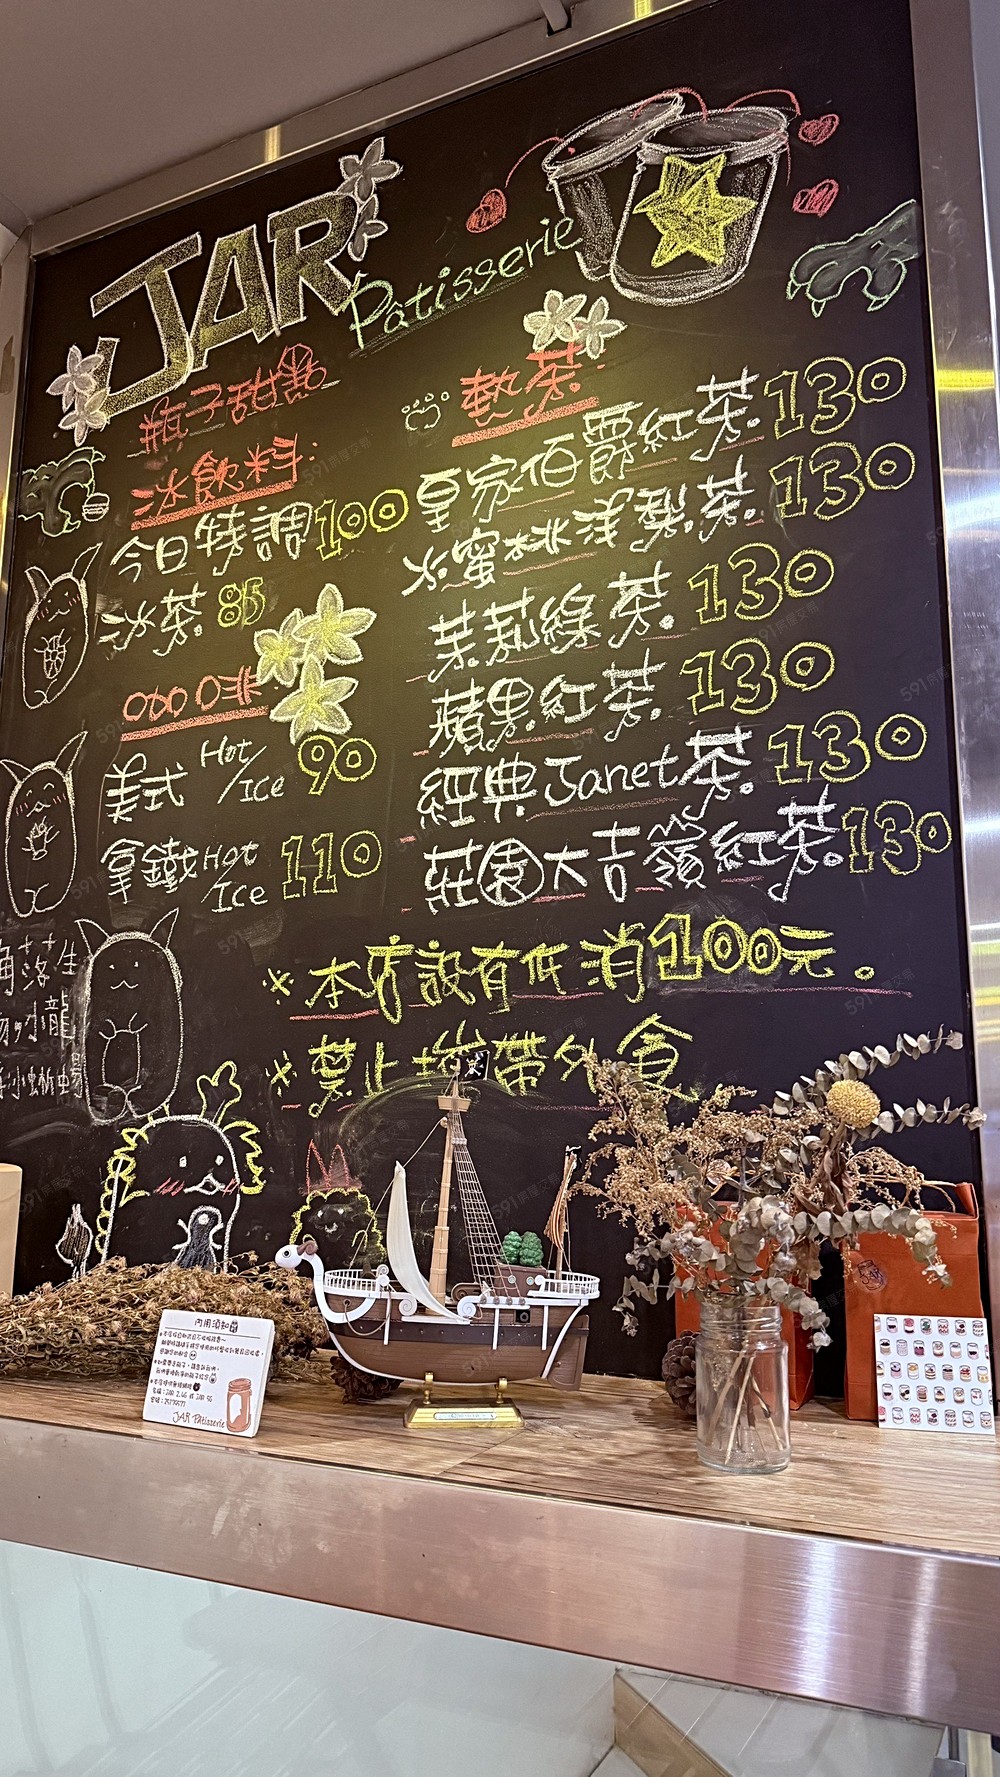 JAR
Pâtisserie
瓶子甜點
冰飲料:
今日特調 100
冰茶 85
咖啡
美式 Hot/Ice 90
拿鐵 Hot/Ice 110
熱茶
皇家伯爵紅茶 130
水蜜桃洋梨茶 130
茉莉綠茶 130
蘋果紅茶 130
經典Janet茶 130
莊園大吉嶺紅茶 130
※本店設有低消100元。
※禁止攜帶外食
角落生
小龍
小蜥蜴
內用須知
JAR Pâtisserie